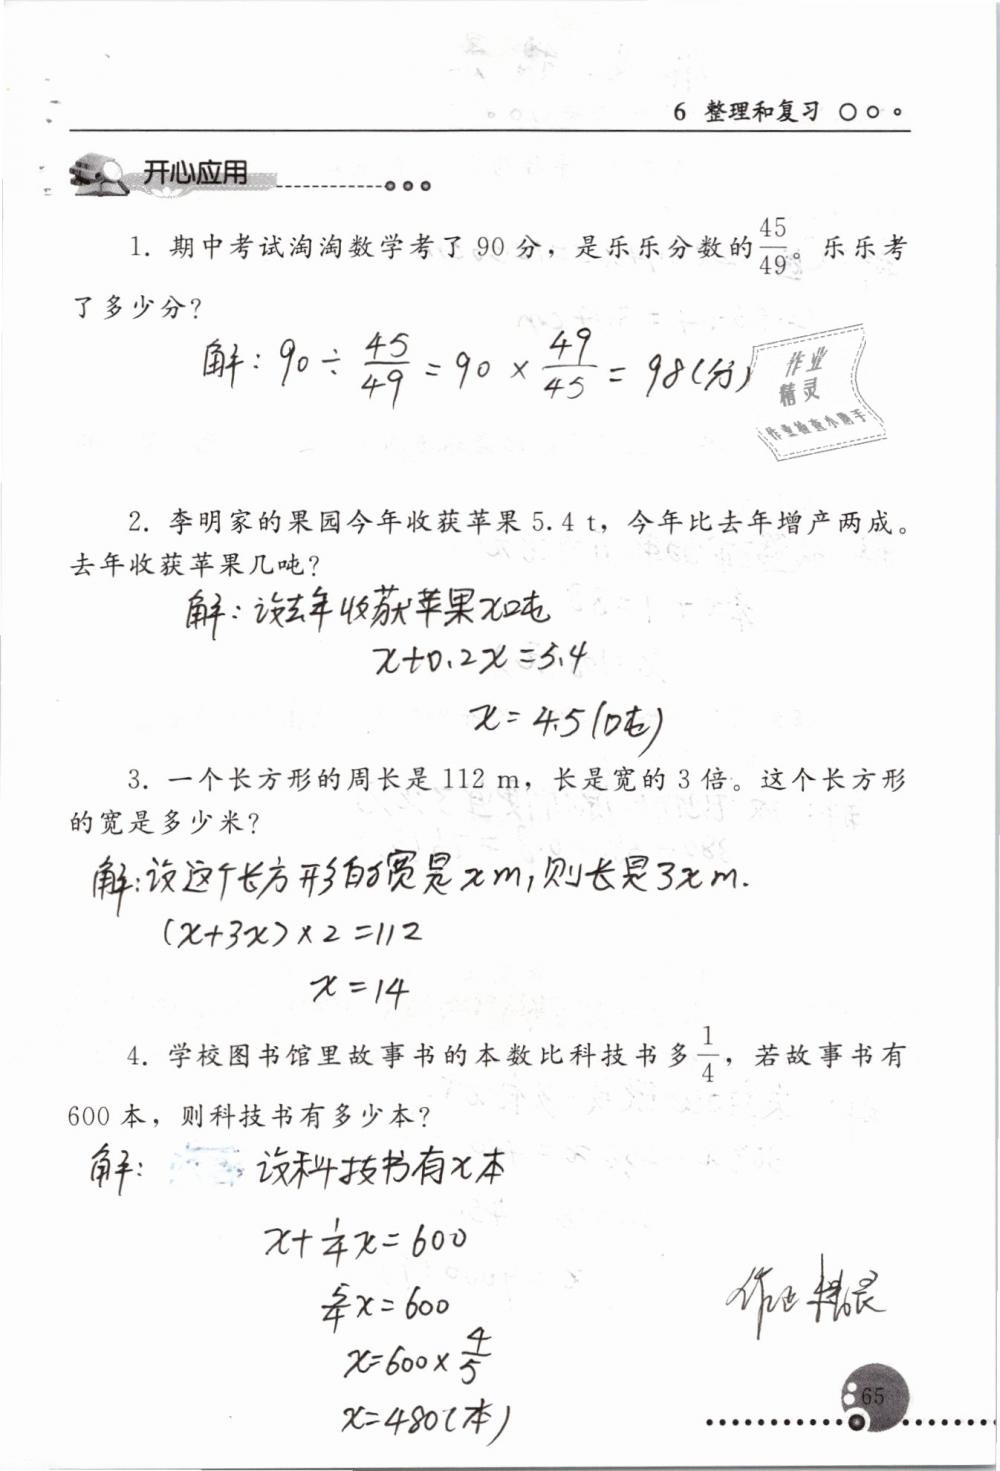 6 整理和复习
开心应用
1. 期中考试淘淘数学考了 90 分，是乐乐分数的 45/49。乐乐考
了多少分？
解：90 ÷ 45/49 = 90 × 49/45 = 98(分)
作业
精灵
作业检查小助手
2. 李明家的果园今年收获苹果 5.4 t，今年比去年增产两成。
去年收获苹果几吨？
解：设去年收获苹果x吨
x+0.2x=5.4
x=4.5(吨)
3. 一个长方形的周长是 112 m，长是宽的 3 倍。这个长方形
的宽是多少米？
解：设这个长方形的宽是xm，则长是3xm.
(x+3x)×2=112
x=14
4. 学校图书馆里故事书的本数比科技书多 1/4，若故事书有
600 本，则科技书有多少本？
解： 设科技书有x本
x+1/4x=600
5/4x=600
x=600×4/5
x=480(本)
作业精灵
65